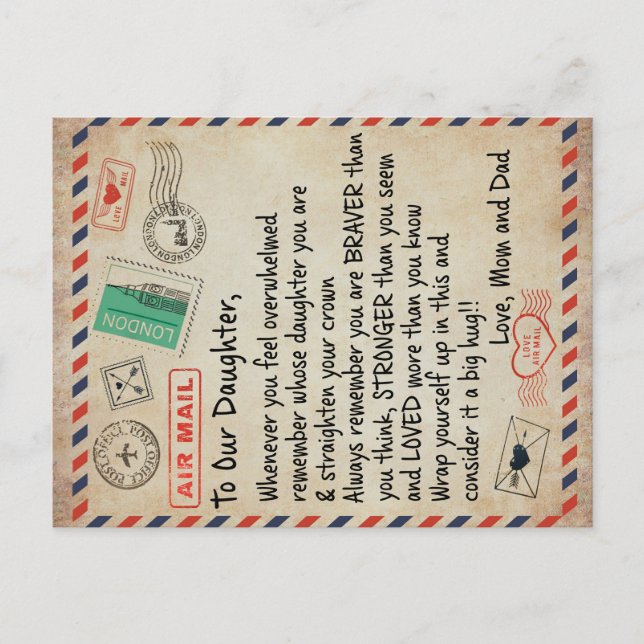 LOVE MAIL
LONDON LONDON LONDON LONDON
LONDON
POST OFFICE POST OFFICE
AIR MAIL
To Our Daughter,
Whenever you feel overwhelmed
remember whose daughter you are
& straighten your crown
Always remember you are BRAVER than
you think, STRONGER than you seem
and LOVED more than you know
Wrap yourself up in this and
consider it a big hug!!
Love, Mom and Dad
LOVE
AIR MAIL